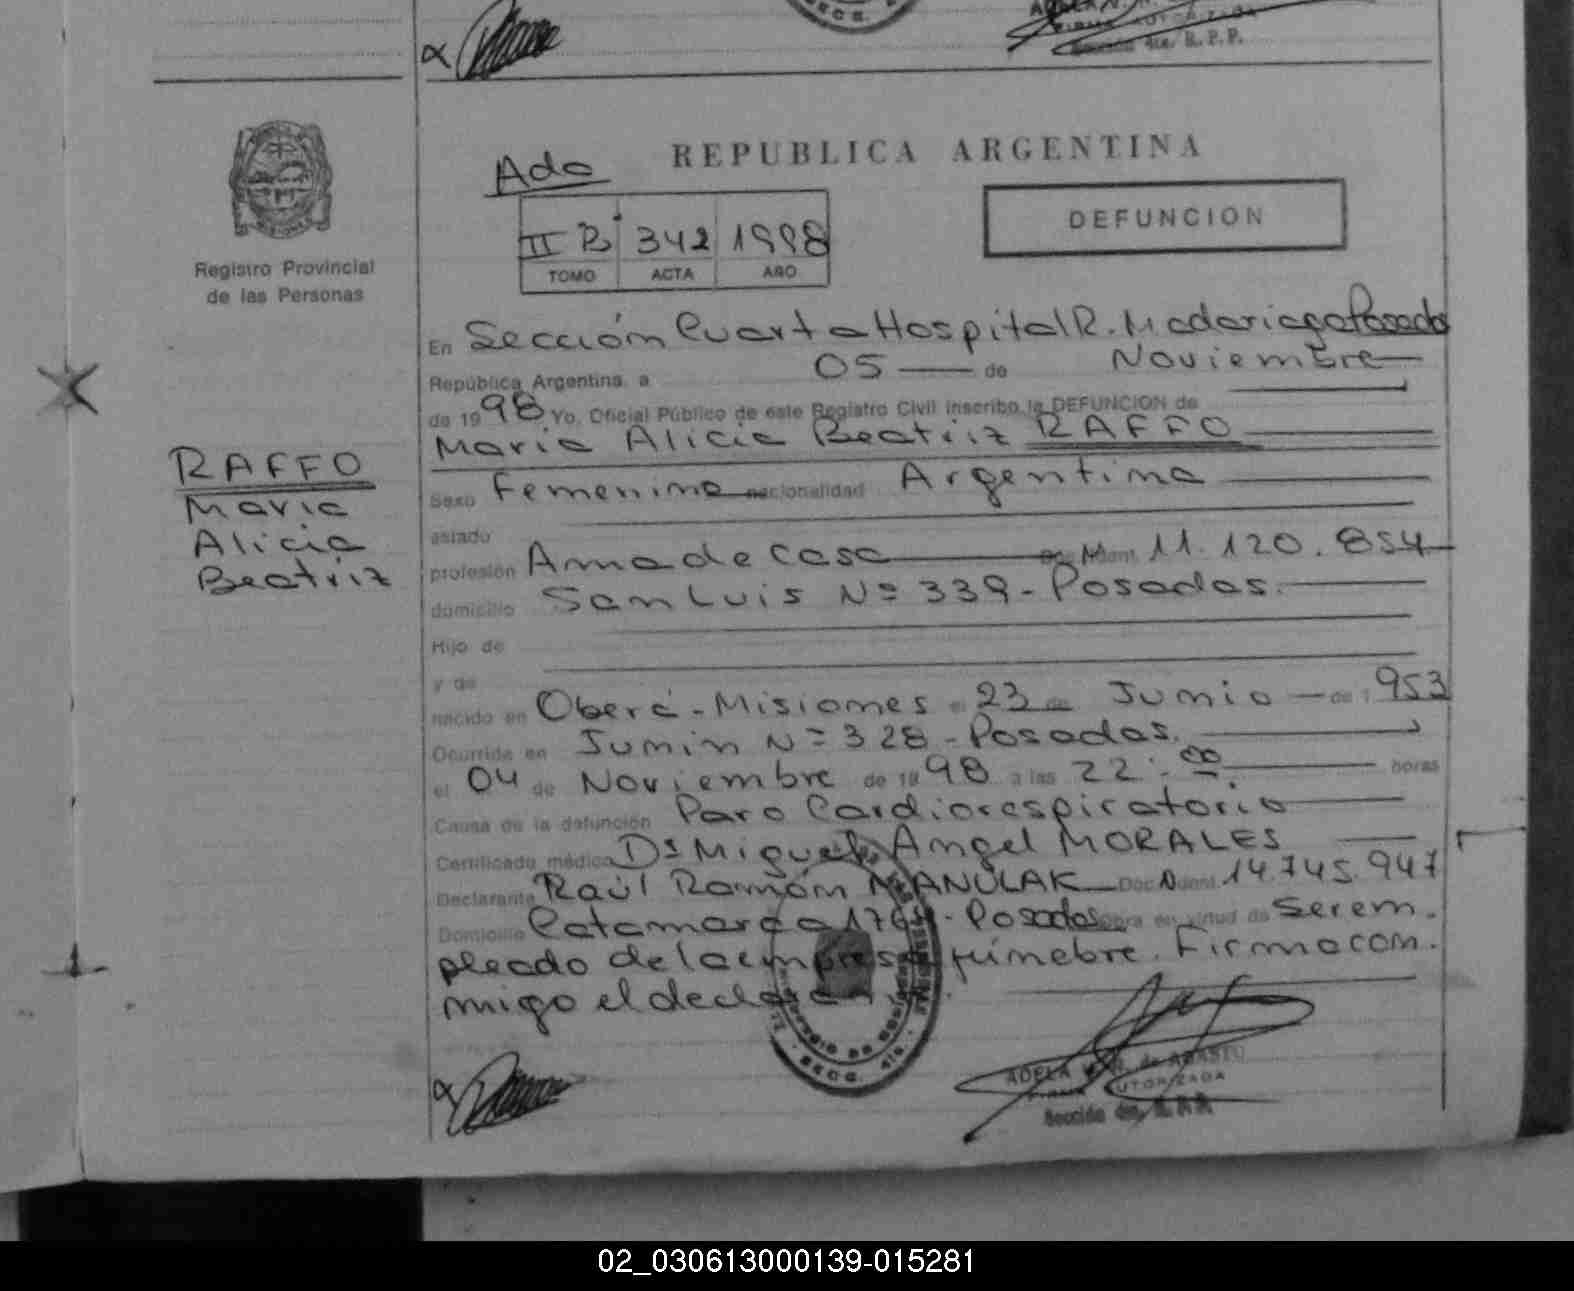 Sección 4ta. R.P.P.
REPUBLICA ARGENTINA
Ado
DEFUNCION
II B 342 1998
TOMO ACTA AÑO
Registro Provincial
de las Personas
En Sección Cuarta Hospital R. Madariaga Posadas
República Argentina, a 05 de Noviembre
de 1998 Yo, Oficial Público de este Registro Civil inscribo la DEFUNCION de
Maria Alicia Beatriz RAFFO
RAFFO
Maria
Alicia
Beatriz
Sexo Femenino nacionalidad Argentina
estado
profesión Ama de casa Doc. Ident. 11.120.854
domicilio San Luis Nº 339 - Posadas.
Hijo de
y de
nacido en Oberá - Misiones el 23 de Junio de 1953
Ocurrida en Junin Nº 328 - Posadas.
el 04 de Noviembre de 1998 a las 22:00 horas
Causa de la defunción Paro Cardiorespiratorio
Certificado médico Dr Miguel Angel MORALES
Declarante Raúl Ramón MANULAK Doc. Ident. 14.745.947
Domicilio Catamarca - Posadas Obra en virtud de Ser em-
pleado de la empresa fúnebre. Firma con-
migo el declarante.
ADELA
AUTORIZADA
Sección 4ta. R.P.P.
02_030613000139-015281